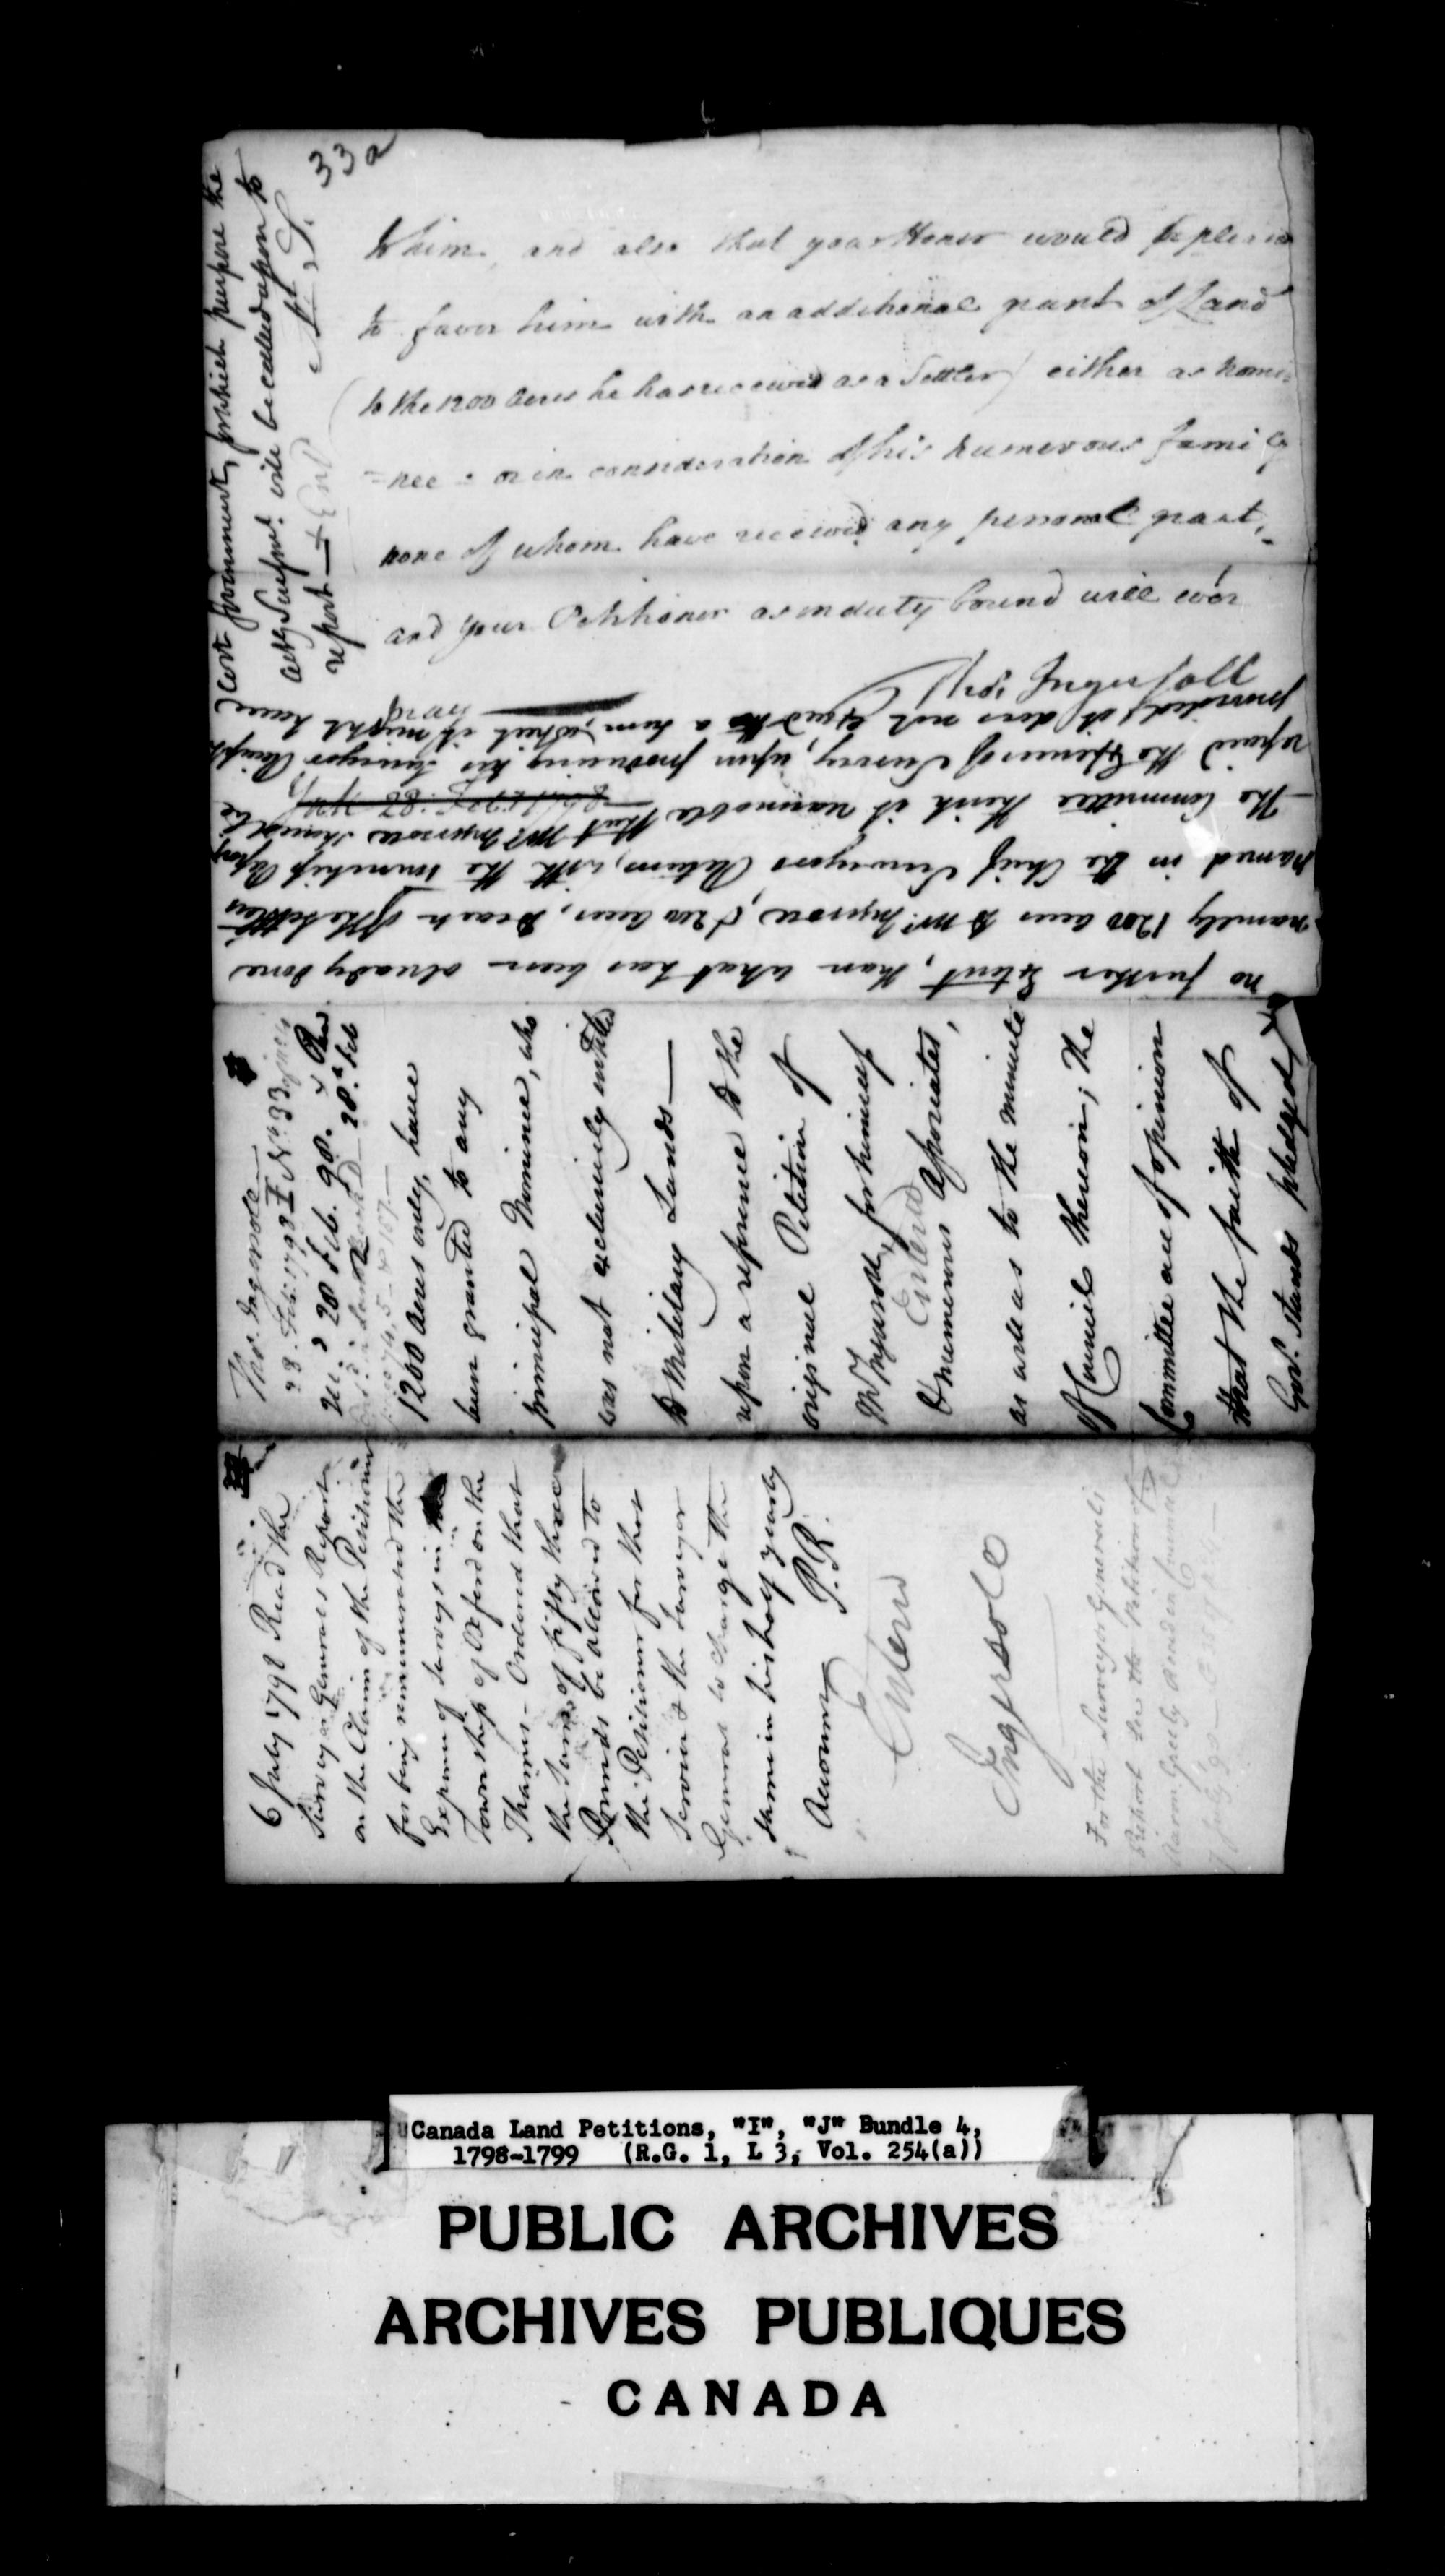 33a
to him, and also that your Honor would be pleased
to favor him with an additional grant of Land
(to the 1200 Acres he has received as a Settler) either as nomi=
=nee = or in consideration of his numerous family
none of whom have received any personal grant,
and your Petitioner as in duty bound will ever
pray
Thos Ingersoll
Thos. Ingersole
28 Feb. 98.
1200 Acres only, have
been granted to any
principal Nominee, who
was not exclusively entitled
to Military Lands —
upon a reference to the
original Petition of
Mr Ingersoll, for himself
& numerous Associates,
Entered
as well as to the minute
of Council thereon; the
Committee are of opinion
that the faith of
Govt. stands pledged
no further Extent, than what has been already done
namely 1200 acres to Mr. Ingersole, & 200 acres, to each of the Settlers
named in the Chief Surveyors Return, with the Township
The Committee think it reasonable that Mr Ingersole should be
repaid the Expences of Survey, upon producing his Surveyor
provided, it does not exceed a sum, which it might have
cost Government, for which purpose the
actg Survr. Genl. will be called upon to
report —
6 July 1798 Read the
Surveyor Generals Report
on the Claim of the Petitioner
for being remunerated the
Expense of Surveys in the
Township of Oxford on the
Thames — Ordered that
the Sum of fifty three
Pounds be allowed to
the Petitioner for that
Service & the Surveyor
General to charge the
same in his half yearly
Account
P.R.
Entered
Ingersole
For the Surveyor Generals
Report see the Petition of
Aaron Greely Read in Council
Canada Land Petitions, "I", "J" Bundle 4,
1798-1799 (R.G. 1, L 3, Vol. 254(a))
PUBLIC ARCHIVES
ARCHIVES PUBLIQUES
CANADA